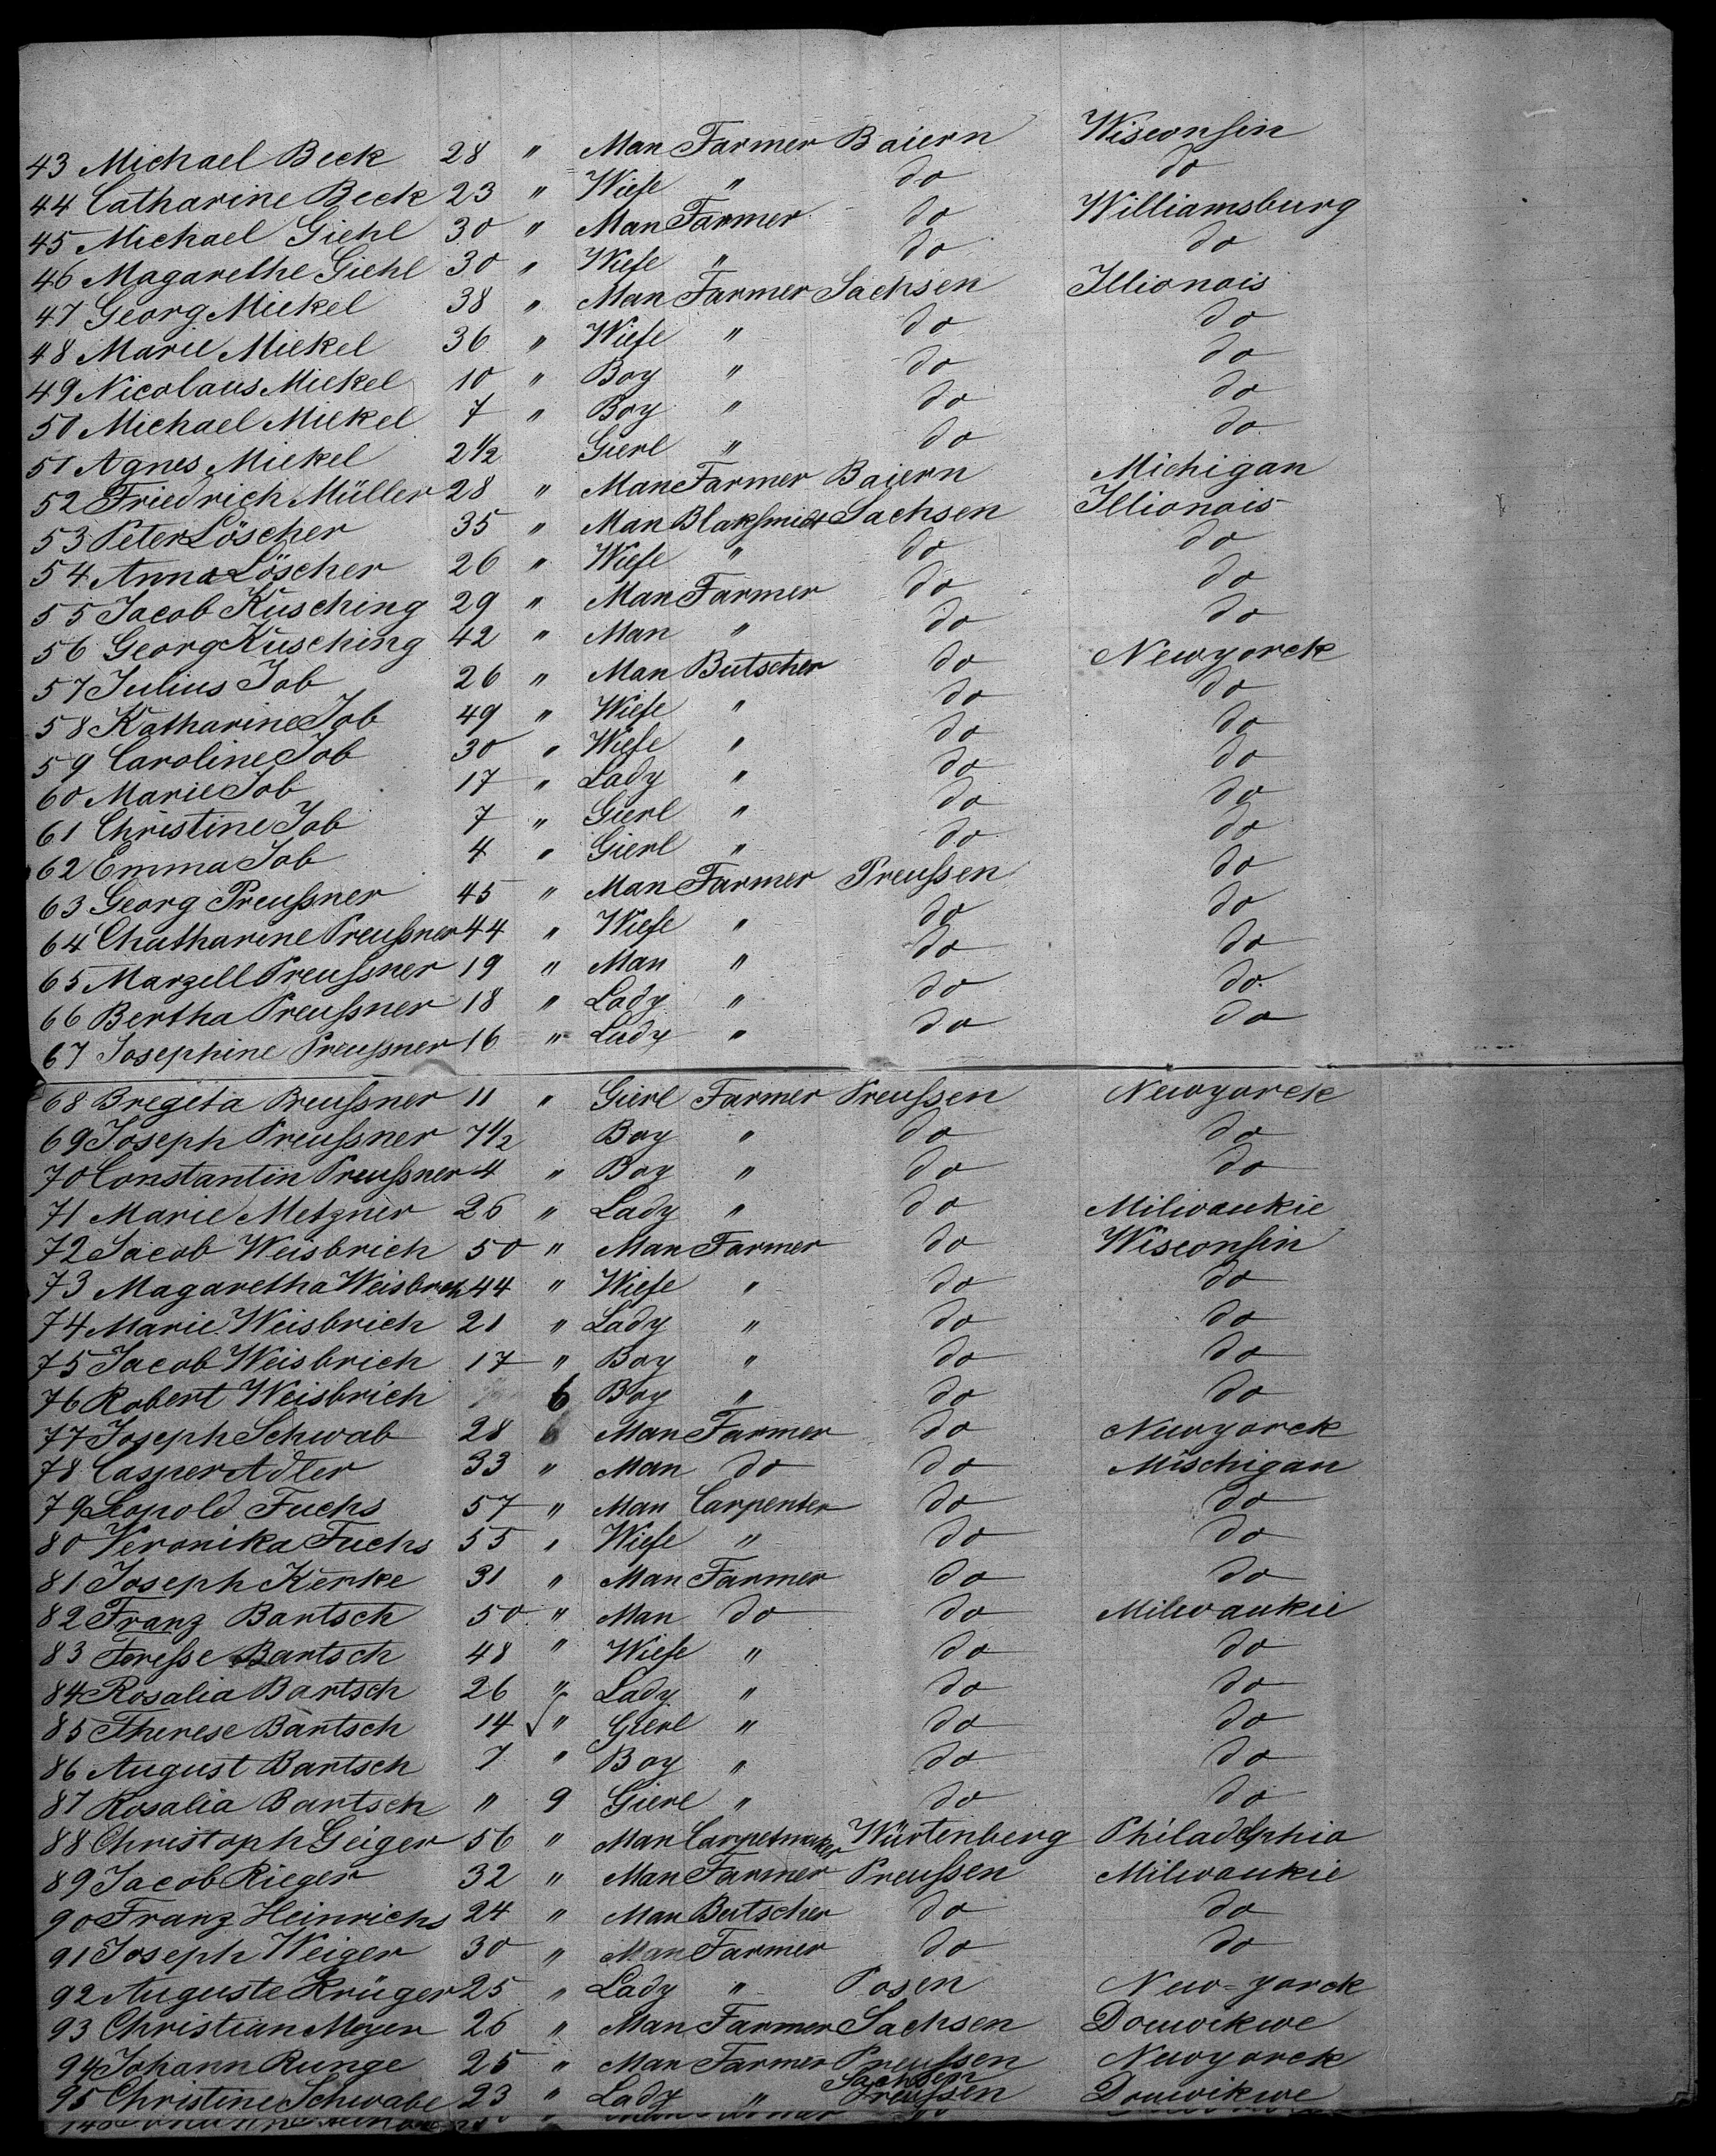 43 Michael Beck 28 " Man Farmer Baiern Wisconsin
44 Catharine Beck 23 " Wiefe " do do
45 Michael Giehl 30 " Man Farmer do Williamsburg
46 Magarethe Giehl 30 " Wiefe " do do
47 Georg Miekel 38 " Man Farmer Sachsen Illionois
48 Marie Miekel 36 " Wiefe " do do
49 Nicolaus Miekel 10 " Boy " do do
50 Michael Miekel 7 " Boy " do do
51 Agnes Miekel 2 1/2 Gierl " do do
52 Friedrich Müller 28 " Man Farmer Baiern Michigan
53 Peter Löscher 35 " Man Blaksmidt Sachsen Illionois
54 Anna Löscher 26 " Wiefe " do do
55 Jacob Küsching 29 " Man Farmer do do
56 Georg Küsching 42 " Man " do do
57 Julius Job 26 " Man Butscher do Newyorck
58 Katharine Job 49 " Wiefe " do do
59 Caroline Job 30 " Wiefe " do do
60 Marie Job 17 " Lady " do do
61 Christine Job 7 " Gierl " do do
62 Emma Job 4 " Gierl " do do
63 Georg Preußner 45 " Man Farmer Preußen do
64 Chatharine Preußner 44 " Wiefe " do do
65 Marzell Preußner 19 " Man " do do
66 Bertha Preußner 18 " Lady " do do
67 Josephine Preußner 16 " Lady " do do
68 Bregita Preußner 11 " Gierl Farmer Preußen Newyorck
69 Joseph Preußner 7 1/2 Boy " do do
70 Constantin Preußner 4 " Boy " do do
71 Marie Metzner 26 " Lady " do Milwaukie
72 Jacob Weisbrich 50 " Man Farmer do Wisconsin
73 Magaretha Weisbrich 44 " Wiefe " do do
74 Marie Weisbrich 21 " Lady " do do
75 Jacob Weisbrich 17 " Boy " do do
76 Robert Weisbrich 6 Boy " do do
77 Joseph Schwab 28 Man Farmer do Newyorck
78 Casper Adler 33 " Man do do Mischigan
79 Leopold Fuchs 57 " Man Carpenter do do
80 Veronika Fuchs 55 " Wiefe " do do
81 Joseph Kenke 31 " Man Farmer do do
82 Franz Bartsch 50 " Man do do Milwaukie
83 Feresse Bartsch 48 " Wiefe " do do
84 Rosalia Bartsch 26 " Lady " do do
85 Therese Bartsch 14 " Gierl " do do
86 August Bartsch 7 " Boy " do do
87 Rosalia Bartsch " 9 Gierl " do do
88 Christoph Geiger 56 " Man Carpetmaker Würtenberg Philadelphia
89 Jacob Rieger 32 " Man Farmer Preußen Milwaukie
90 Franz Heinrichs 24 " Man Butscher do do
91 Joseph Weiger 30 " Man Farmer do do
92 Auguste Krüger 25 " Lady " Posen New-yorck
93 Christian Meyer 26 " Man Farmer Sachsen Douwikwe
94 Johann Runge 25 " Man Farmer Preußen Newyorck
95 Christine Schwabe 23 " Lady " Sachsen Preussen Douwikwe